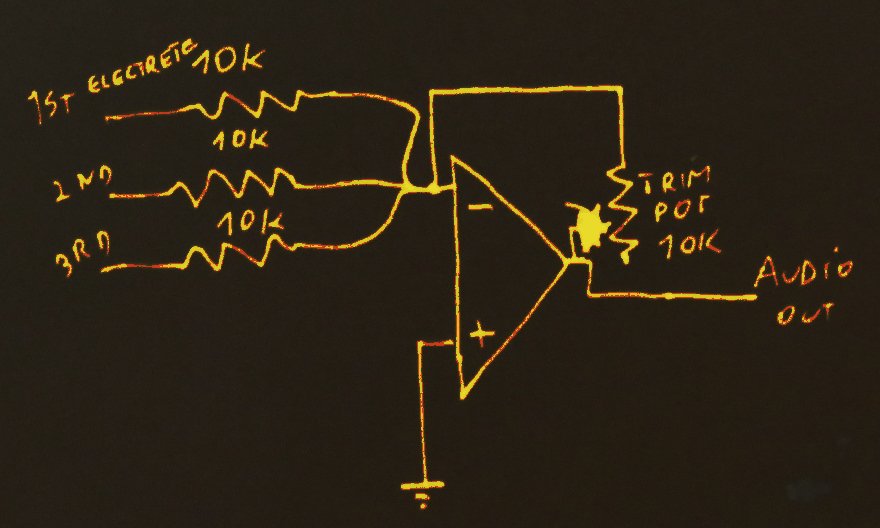 1ST ELECTRETE
10K
10K
2ND
10K
3RD
-
+
TRIM
POT
10K
AUDIO
OUT